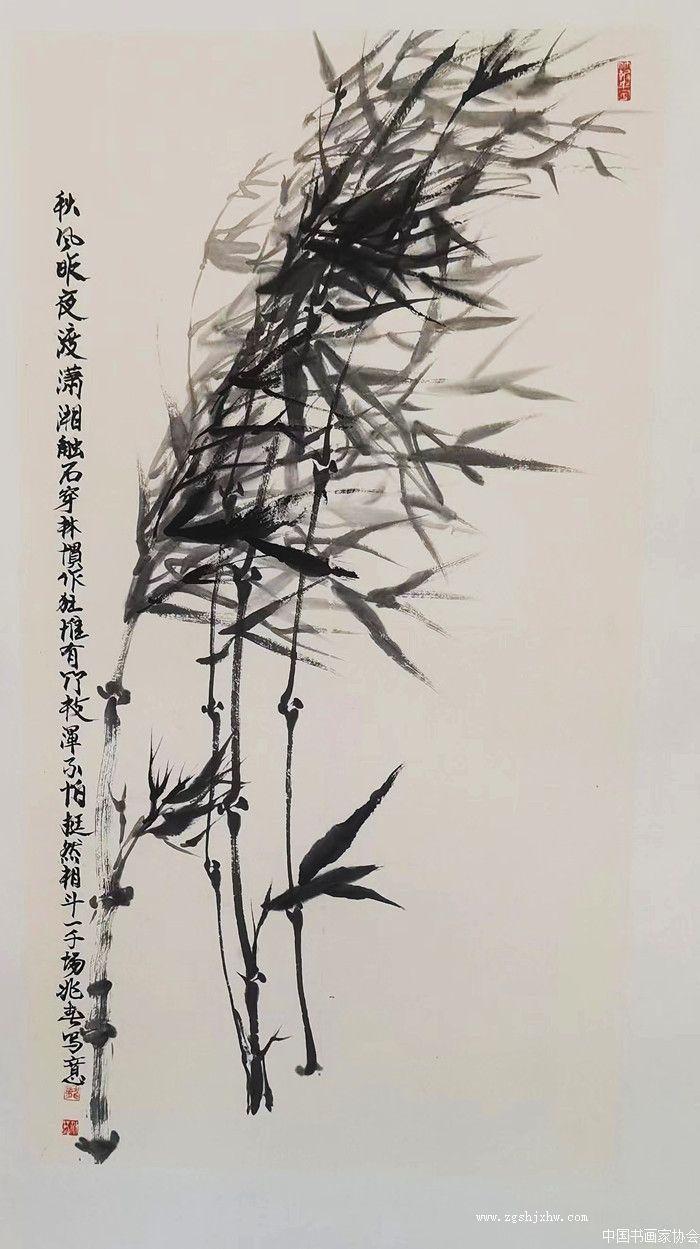 秋风昨夜渡潇湘触石穿林惯作狂惟有竹枝浑不怕挺然相斗一千场兆春写意
www.zgshjxhw.com
中国书画家协会